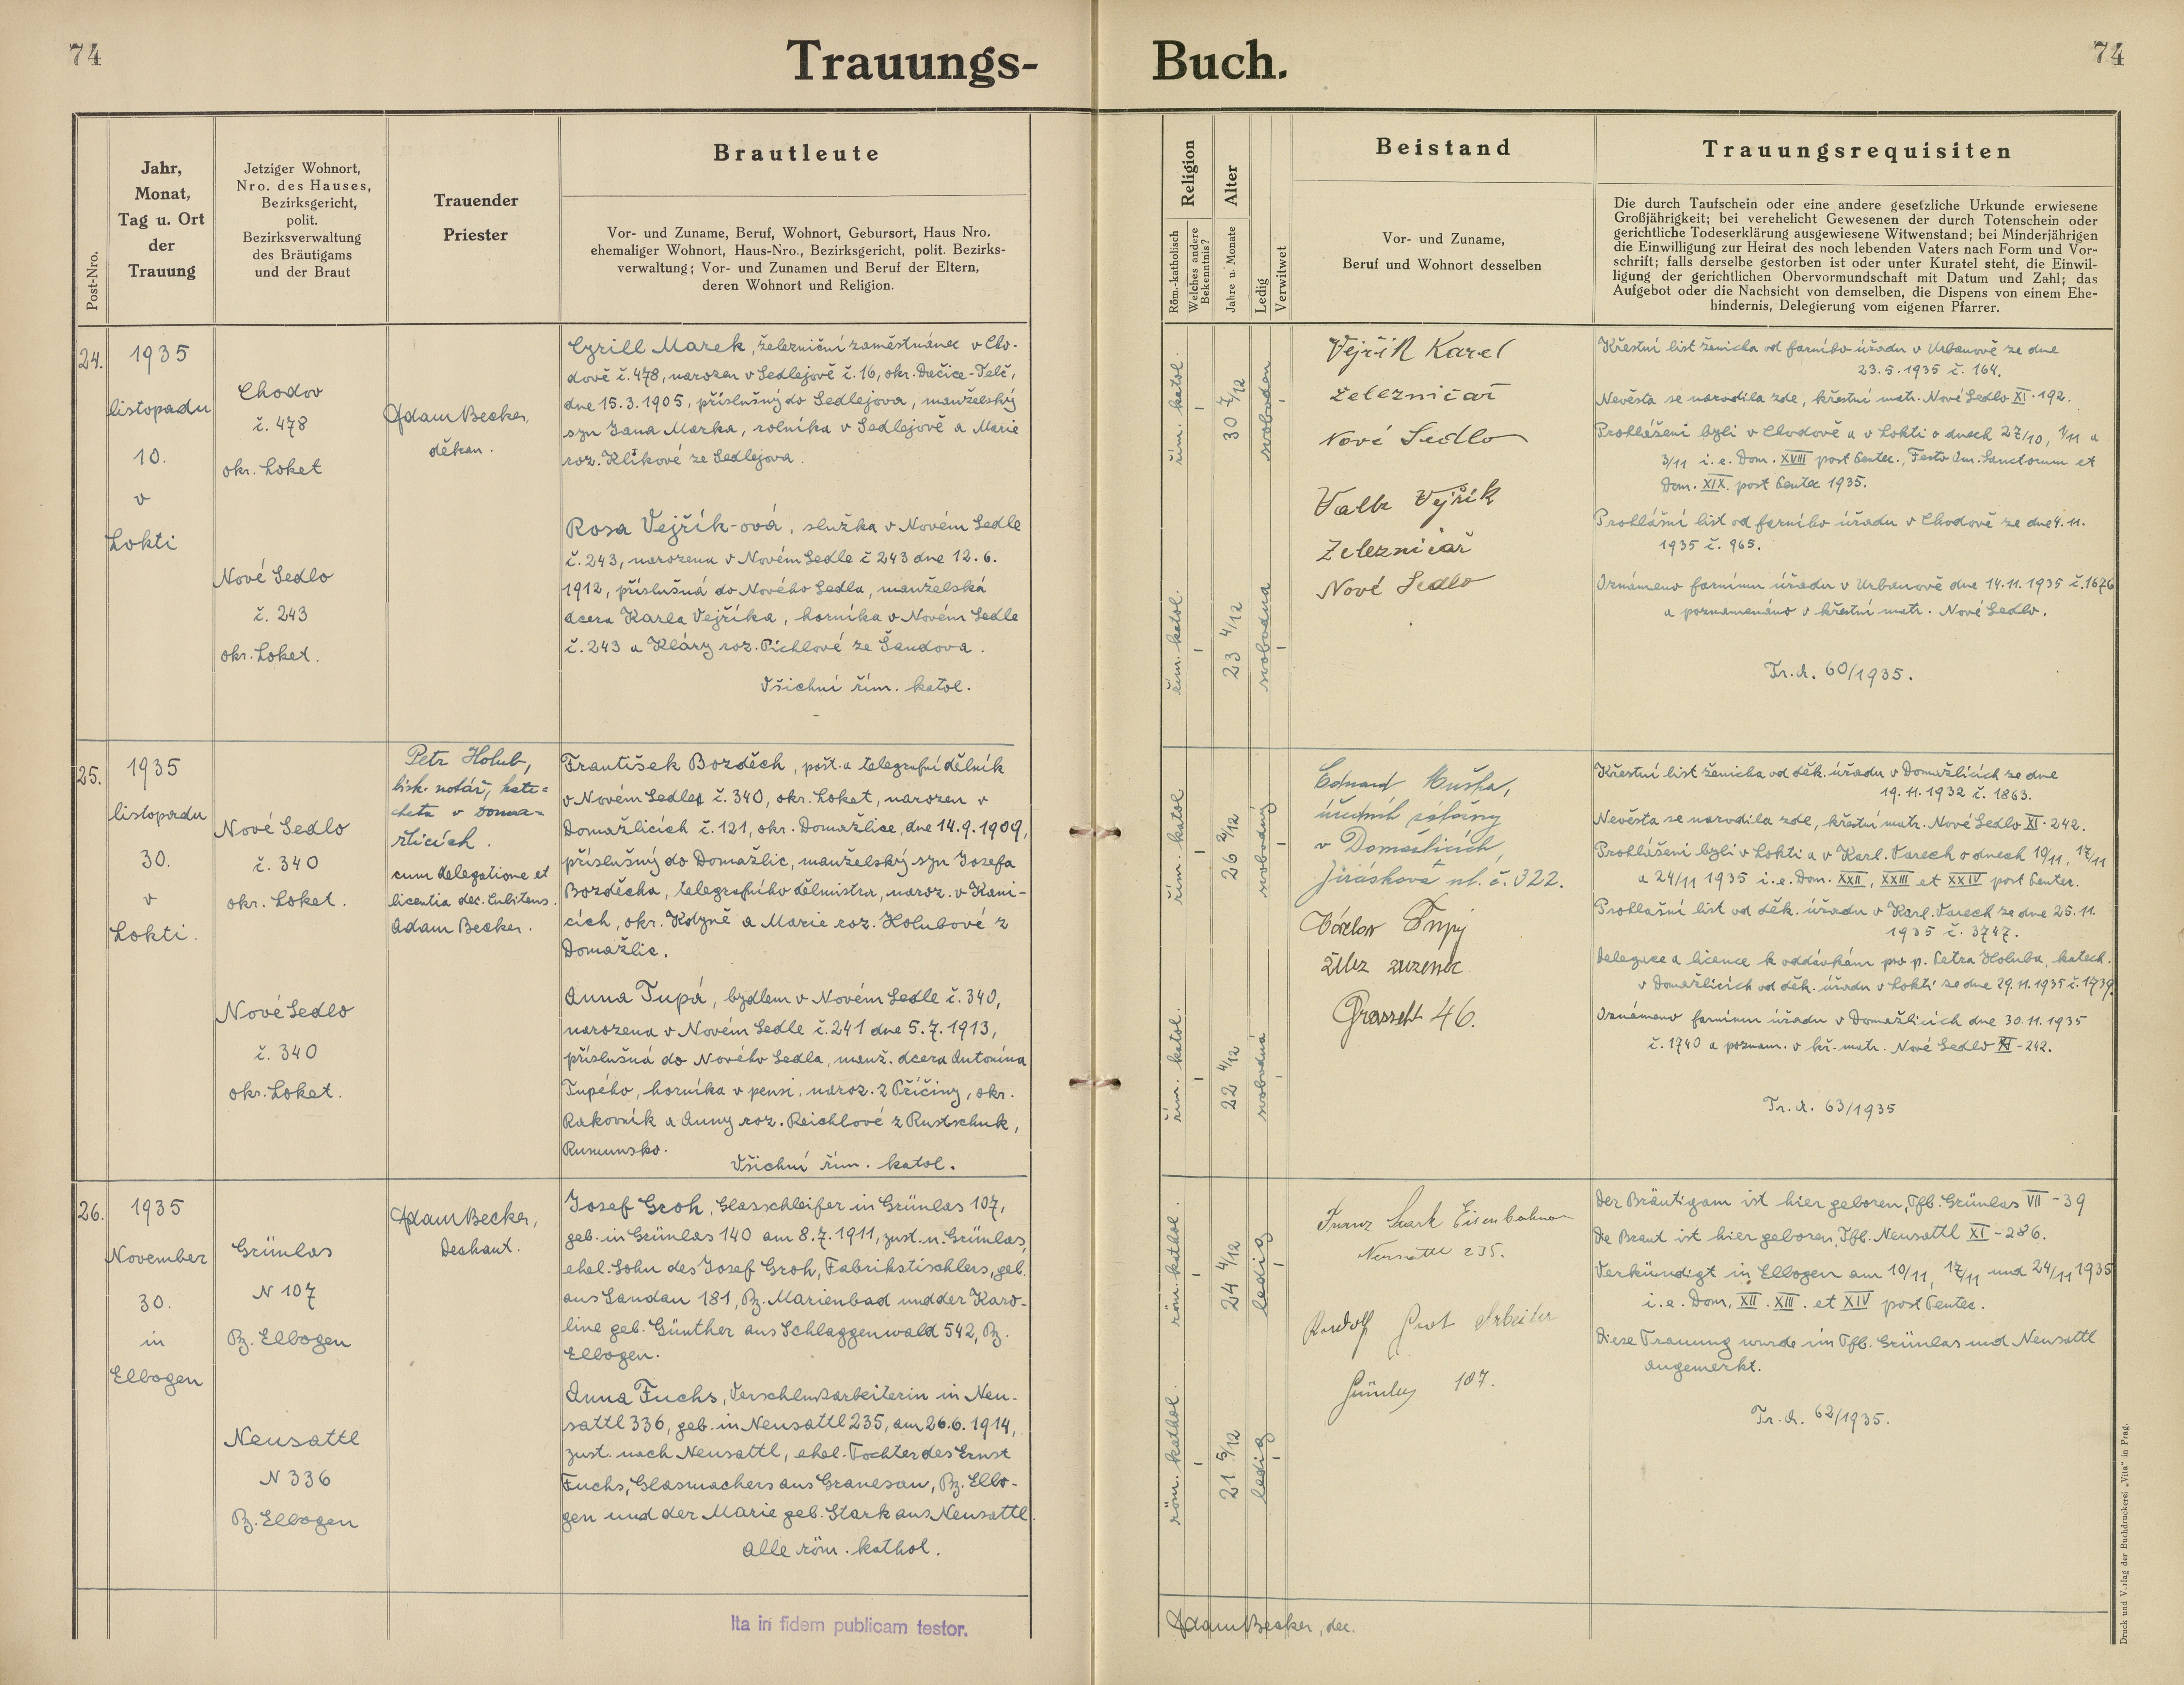 74
Trauungs-
Buch.
74
Post-Nro.
Jahr,
Monat,
Tag u. Ort
der
Trauung
Jetziger Wohnort,
Nro. des Hauses,
Bezirksgericht,
polit.
Bezirksverwaltung
des Bräutigams
und der Braut
Trauender
Priester
Brautleute
Vor- und Zuname, Beruf, Wohnort, Geburtsort, Haus Nro.
ehemaliger Wohnort, Haus-Nro., Bezirksgericht, polit. Bezirks-
verwaltung; Vor- und Zunamen und Beruf der Eltern,
deren Wohnort und Religion.
Religion
Röm.-katholisch
Welches andere
Bekenntnis?
Alter
Jahre u. Monate
Ledig
Verwitwet
Beistand
Vor- und Zuname,
Beruf und Wohnort desselben
Trauungsrequisiten
Die durch Taufschein oder eine andere gesetzliche Urkunde erwiesene
Großjährigkeit; bei verehelicht Gewesenen der durch Totenschein oder
gerichtliche Todeserklärung ausgewiesene Witwenstand; bei Minderjährigen
die Einwilligung zur Heirat des noch lebenden Vaters nach Form und Vor-
schrift; falls derselbe gestorben ist oder unter Kuratel steht, die Einwil-
ligung der gerichtlichen Obervormundschaft mit Datum und Zahl; das
Aufgebot oder die Nachsicht von demselben, die Dispens von einem Ehe-
hindernis, Delegierung vom eigenen Pfarrer.
24.
1935
listopadu
10.
v
Lokti
Chodov
č. 478
okr. Loket
Nové Sedlo
č. 243
okr. Loket.
Adam Becker,
děkan.
Cyrill Marek, železniční zaměstnanec v Cho-
dově č. 478, narozen v Sedlejově č. 16, okr. Dačice-Telč,
dne 15.3.1905, příslušný do Sedlejova, manželský
syn Jana Marka, rolníka v Sedlejově a Marie
roz. Klikové ze Sedlejova.
Rosa Vejřík-ová, služka v Novém Sedle
č. 243, narozena v Novém Sedle č 243 dne 12.6.
1912, příslušná do Nového Sedla, manželská
dcera Karla Vejříka, horníka v Novém Sedle
č. 243 a Kláry roz. Pichlové ze Šandova.
Všichni řím. katol.
řím. katol.
30 7/12
svoboden
řím. katol.
23 4/12
svobodna
Vejřík Karel
železničař
Nové Sedlo
Vejřík
Železničař
Nové Sedlo
Křestní list ženicha od farního úřadu v Urbanově ze dne
23.5.1935 č. 164.
Nevěsta se narodila zde, křestní matr. Nové Sedlo XI. 192.
Prohlášeni byli v Chodově a v Lokti o dnech 27/10, 1/11 a
3/11 i. e. Dom. XVIII post Pentec., Festo Om. Sanctorum et
Dom. XIX. post Pentec 1935.
Prohlášní list od farního úřadu v Chodově ze dne 4. 11.
1935 č. 965.
Oznámeno farnímu úřadu v Urbanově dne 14.11.1935 č. 1676
a poznamenáno v křestní matr. Nové Sedlo.
Tr. A. 60/1935.
25.
1935
listopadu
30.
v
Lokti.
Nové Sedlo
č. 340
okr. Loket.
Nové Sedlo
č. 340
okr. Loket.
Petr Holub,
bisk. notář, kate-
cheta v Doma-
žlicích.
cum delegatione et
licentia dec. Cubitens.
Adam Becker.
František Bozděch, pošt. a telegrafní dělník
v Novém Sedle č. 340, okr. Loket, narozen v
Domažlicích č. 121, okr. Domažlice, dne 14.9.1909,
příslušný do Domažlic, manželský syn Josefa
Bozděcha, telegrafního dělmistra, naroz. v Kani-
cích, okr. Kdyně a Marie roz. Holubové z
Domažlic.
Anna Tupá, bydlem v Novém Sedle č. 340,
narozena v Novém Sedle č. 241 dne 5.7.1913,
příslušná do Nového Sedla, manž. dcera Antonína
Tupého, horníka v pensi, naroz. z Příčiny, okr.
Rakovník a Anny roz. Reichlové z Rustschuk,
Rumunsko.
Všichni řím. katol.
řím. katol
26 2/12
svobodný
řím. katol.
22 4/12
svobodná
Eduard
v Domažlicích,
Jiráskova ul. č. 322.
Václav Tupý
46.
Křestní list ženicha od děk. úřadu v Domažlicích ze dne
19.11.1932 č. 1863.
Nevěsta se narodila zde, křestní matr. Nové Sedlo XI. 242.
Prohlášeni byli v Lokti a v Karl. Varech o dnech 10/11, 17/11
a 24/11 1935 i. e. Dom. XXII, XXIII et XXIV post Pentec.
Prohlášní list od děk. úřadu v Karl. Varech ze dne 25. 11.
1935 č. 3747.
Delegace a licence k oddávkám pro p. Petra Holuba, katech.
v Domažlicích od děk. úřadu v Lokti ze dne 29.11.1935 č. 1739.
Oznámeno farnímu úřadu v Domažlicích dne 30.11.1935
č. 1740 a poznam. v kř. matr. Nové Sedlo XI - 242.
Tr. A. 63/1935
26.
1935
November
30.
in
Elbogen
Grünlas
N 107
Bz. Elbogen
Neusattl
N 336
Bz. Elbogen
Adam Becker,
Dechant.
Josef Groh, Glasschleifer in Grünlas 107,
geb. in Grünlas 140 am 8.7.1911, zust. n. Grünlas,
ehel. Sohn des Josef Groh, Fabrikstischlers, geb.
aus Sandau 181, Bz. Marienbad und der Karo-
line geb. Günther aus Schlaggenwald 542, Bz.
Elbogen.
Anna Fuchs, Verschlußarbeiterin in Neu-
sattl 336, geb. in Neusattl 235, am 26.6.1914,
zust. nach Neusattl, ehel. Tochter des Ernst
Fuchs, Glasmachers aus Granesau, Bz. Elbo-
gen und der Marie geb. Stark aus Neusattl.
Alle röm. kathol.
röm. kathol.
24 4/12
ledig
röm. kathol.
21 5/12
ledig
Franz Stark Eisenbahner
Neusattl 235.
Rudolf Arbeiter
Grünlas 107.
Der Bräutigam ist hier geboren, Tfb. Grünlas VII - 39
Die Braut ist hier geboren, Tfb. Neusattl XI - 286.
Verkündigt in Elbogen am 10/11, 17/11 und 24/11 1935
i. e. Dom. XII. XIII. et XIV post Pentec.
Diese Trauung wurde im Tfb. Grünlas und Neusattl
angemerkt.
Tr. A. 62/1935.
Ita in fidem publicam testor.
Adam Becker, dec.
Druck und Verlag der Buchdruckerei „Vita" in Prag.